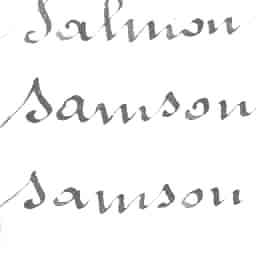 Salmon
Samson
Samson